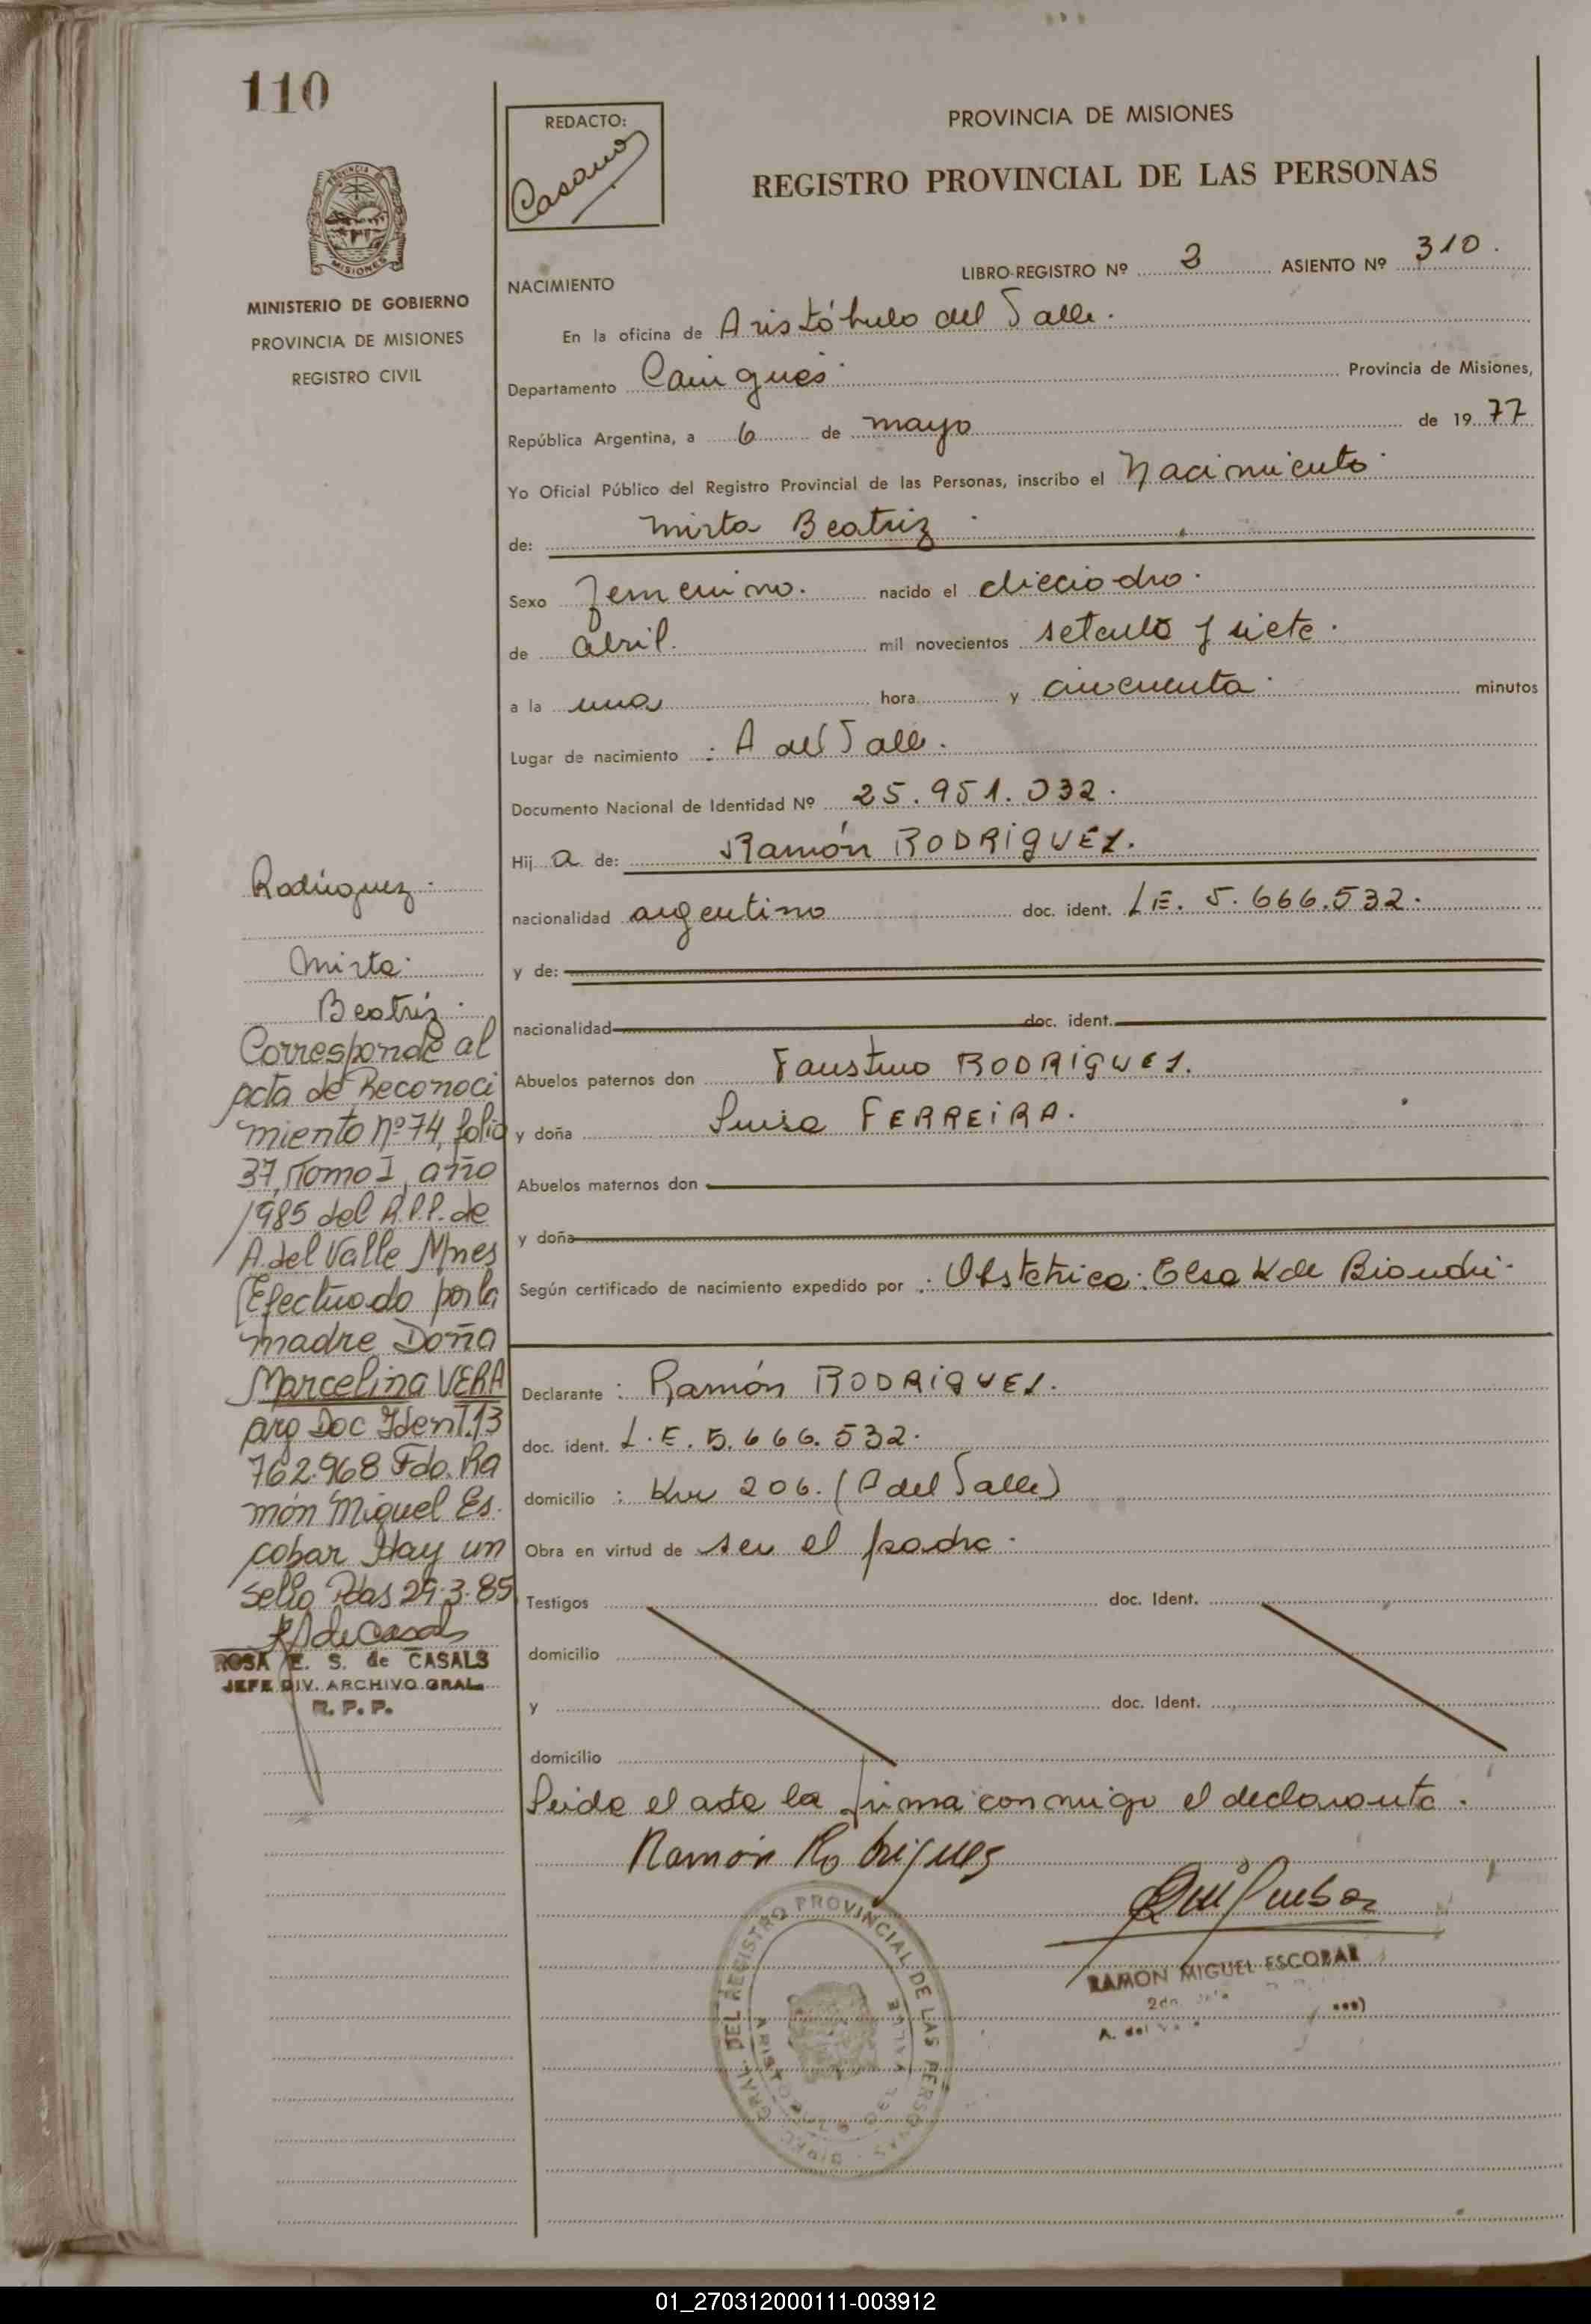 110
REDACTO:
Casano
PROVINCIA DE MISIONES
REGISTRO PROVINCIAL DE LAS PERSONAS
MISIONES
MINISTERIO DE GOBIERNO
PROVINCIA DE MISIONES
REGISTRO CIVIL
LIBRO-REGISTRO Nº 2 ASIENTO Nº 310.
NACIMIENTO
En la oficina de Aristóbulo del Valle.
Departamento Cainguás Provincia de Misiones,
República Argentina, a 6 de mayo de 1977
Yo Oficial Público del Registro Provincial de las Personas, inscribo el Nacimiento
de: Mirta Beatriz
Sexo Femenino. nacido el dieciocho.
de abril. mil novecientos setenta y siete.
a la una hora y cincuenta minutos
Lugar de nacimiento : A del Valle.
Documento Nacional de Identidad Nº 25.951.032.
Hija de: Ramón RODRIGUEZ.
nacionalidad argentino doc. ident. LE. 5.666.532.
y de:
nacionalidad doc. ident.
Abuelos paternos don Faustino RODRIGUEZ.
y doña Luisa FERREIRA.
Abuelos maternos don
y doña
Según certificado de nacimiento expedido por : Obstetrica: Elsa K de Biondi
Declarante : Ramón RODRIGUEZ.
doc. ident. L.E. 5.666.532.
domicilio : Km 206. (A del Valle)
Obra en virtud de ser el padre.
Testigos doc. Ident.
domicilio
y doc. Ident.
domicilio
Leida el acta la firma conmigo el declarante.
Ramón Rodrigues
RAMON MIGUEL ESCOBAR
A. del
DEL REGISTRO PROVINCIAL DE LAS PERSONAS
Rodriguez
Mirta
Beatriz
Corresponde al
acta de Reconoci
miento Nº 74, folio
37, Tomo I, año
1985 del R.P.P. de
A. del Valle Mnes
Efectuado por la
madre Doña
Marcelina VERA
arg Doc Ident. 13
762.968 Fdo. Ra
món Miguel Es.
cobar Hay un
sello Pdas 29.3.85
RS de Casals
ROSA E. S. de CASALS
JEFE DIV. ARCHIVO GRAL.
R. P. P.
01_270312000111-003912